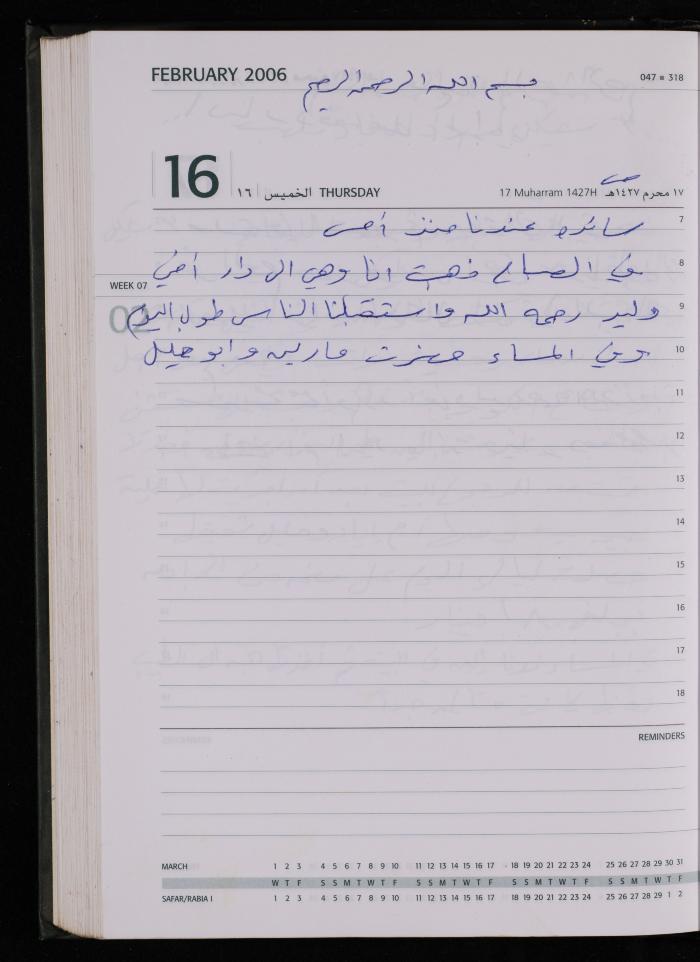 FEBRUARY 2006
بسم الله الرحمن الرحيم
047 ▪ 318
16
١٦ الخميس THURSDAY
17 Muharram 1427H ١٧ محرم ١٤٢٧هـ
7
سائده عندنا منذ أمس
8
في الصباح ذهبت انا وهي الى دار أخي
WEEK 07
9
وليد رحمه الله واستقبلنا الناس طول اليوم
10
وفي المساء حضرت فارس وابو جميل
11
12
13
14
15
16
17
18
REMINDERS
MARCH 1 2 3 4 5 6 7 8 9 10 11 12 13 14 15 16 17 18 19 20 21 22 23 24 25 26 27 28 29 30 31
W T F S S M T W T F S S M T W T F S S M T W T F S S M T W T F
SAFAR/RABIA I 1 2 3 4 5 6 7 8 9 10 11 12 13 14 15 16 17 18 19 20 21 22 23 24 25 26 27 28 29 1 2